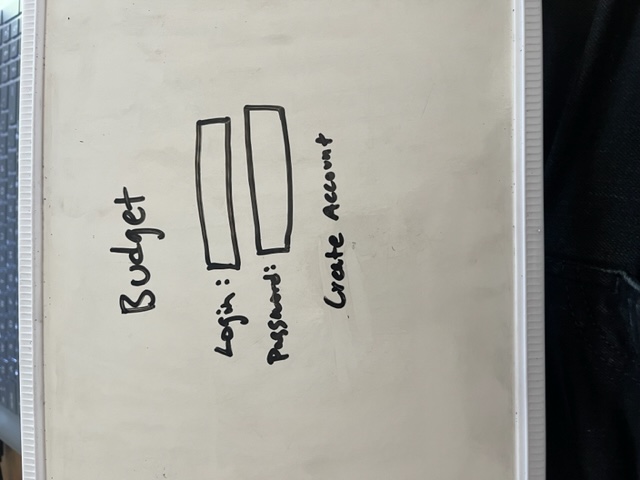 Budget
Login:
Password:
Create Account